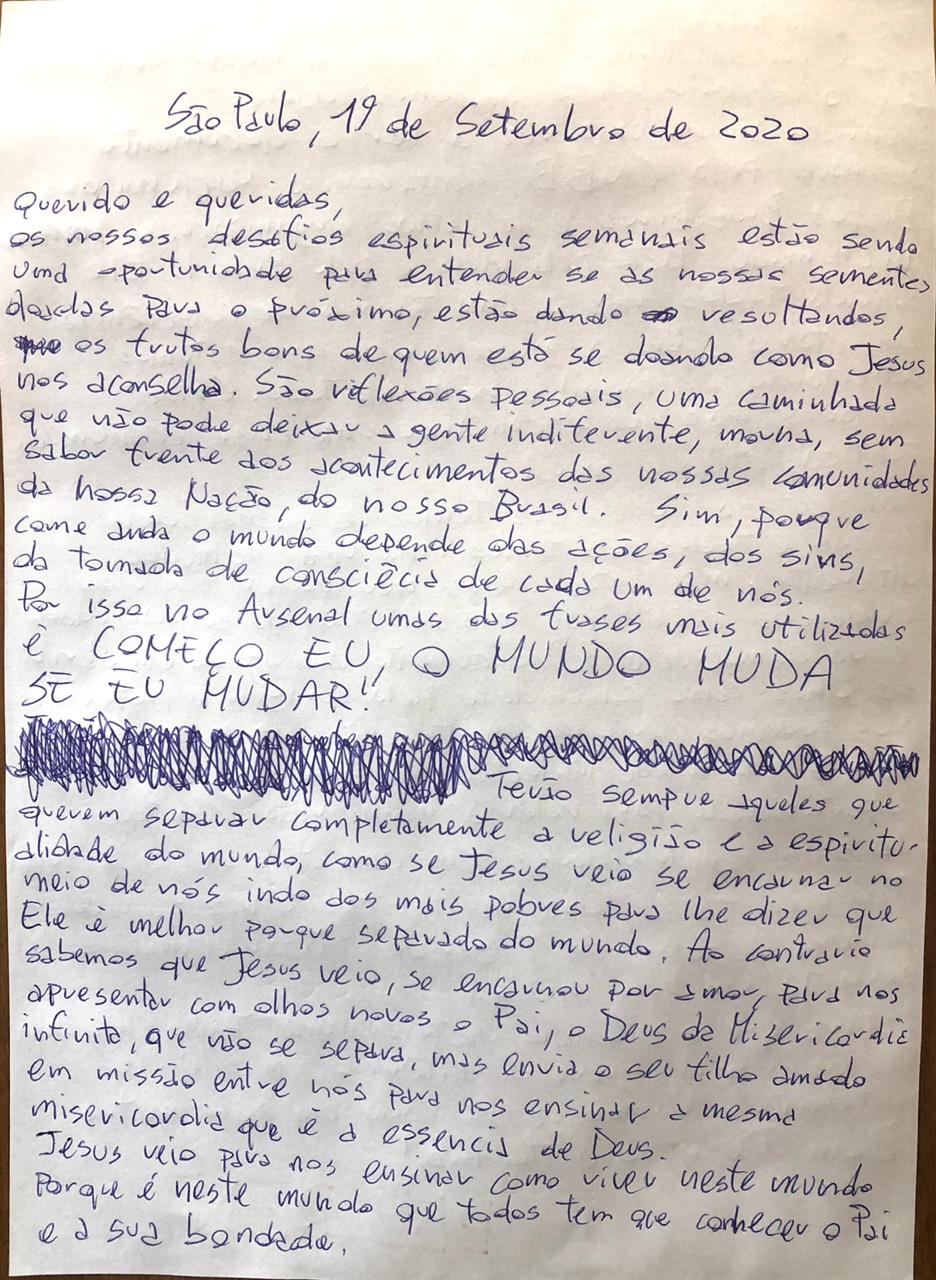 São Paulo, 19 de Setembro de 2020
Querido e queridas,
os nossos desafios espirituais semanais estão sendo
uma oportunidade para entender se as nossas sementes
doadas para o próximo, estão dando resultandos,
os frutos bons de quem está se doando como Jesus
nos aconselha. São reflexões pessoais, uma caminhada
que não pode deixar a gente indiferente, morna, sem
sabor frente aos acontecimentos das nossas comunidades
da nossa Nação, do nosso Brasil. Sim, porque
come anda o mundo depende das ações, dos sins,
da tomada de consciêcia de cada um de nós.
Por isso no Arsenal umas das frases mais utilizadas
é COMEÇO EU, O MUNDO MUDA
SE EU MUDAR!
Terão sempre aqueles que
querem separar completamente a religião e a espiritu-
alidade do mundo, como se Jesus veio se encarnar no
meio de nós indo dos mais pobres para lhe dizer que
Ele è melhor porque separado do mundo. Ao contrario
sabemos que Jesus veio, se encarnou por amor, para nos
apresentar com olhos novos o Pai, o Deus da Misericordia
infinita, que não se separa, mas envia o seu filho amado
em missão entre nós para nos ensinar a mesma
misericordia que è a essencia de Deus.
Jesus veio para nos ensinar como viver neste mundo
Porque é neste mundo que todos tem que conhecer o Pai
e a sua bondade.